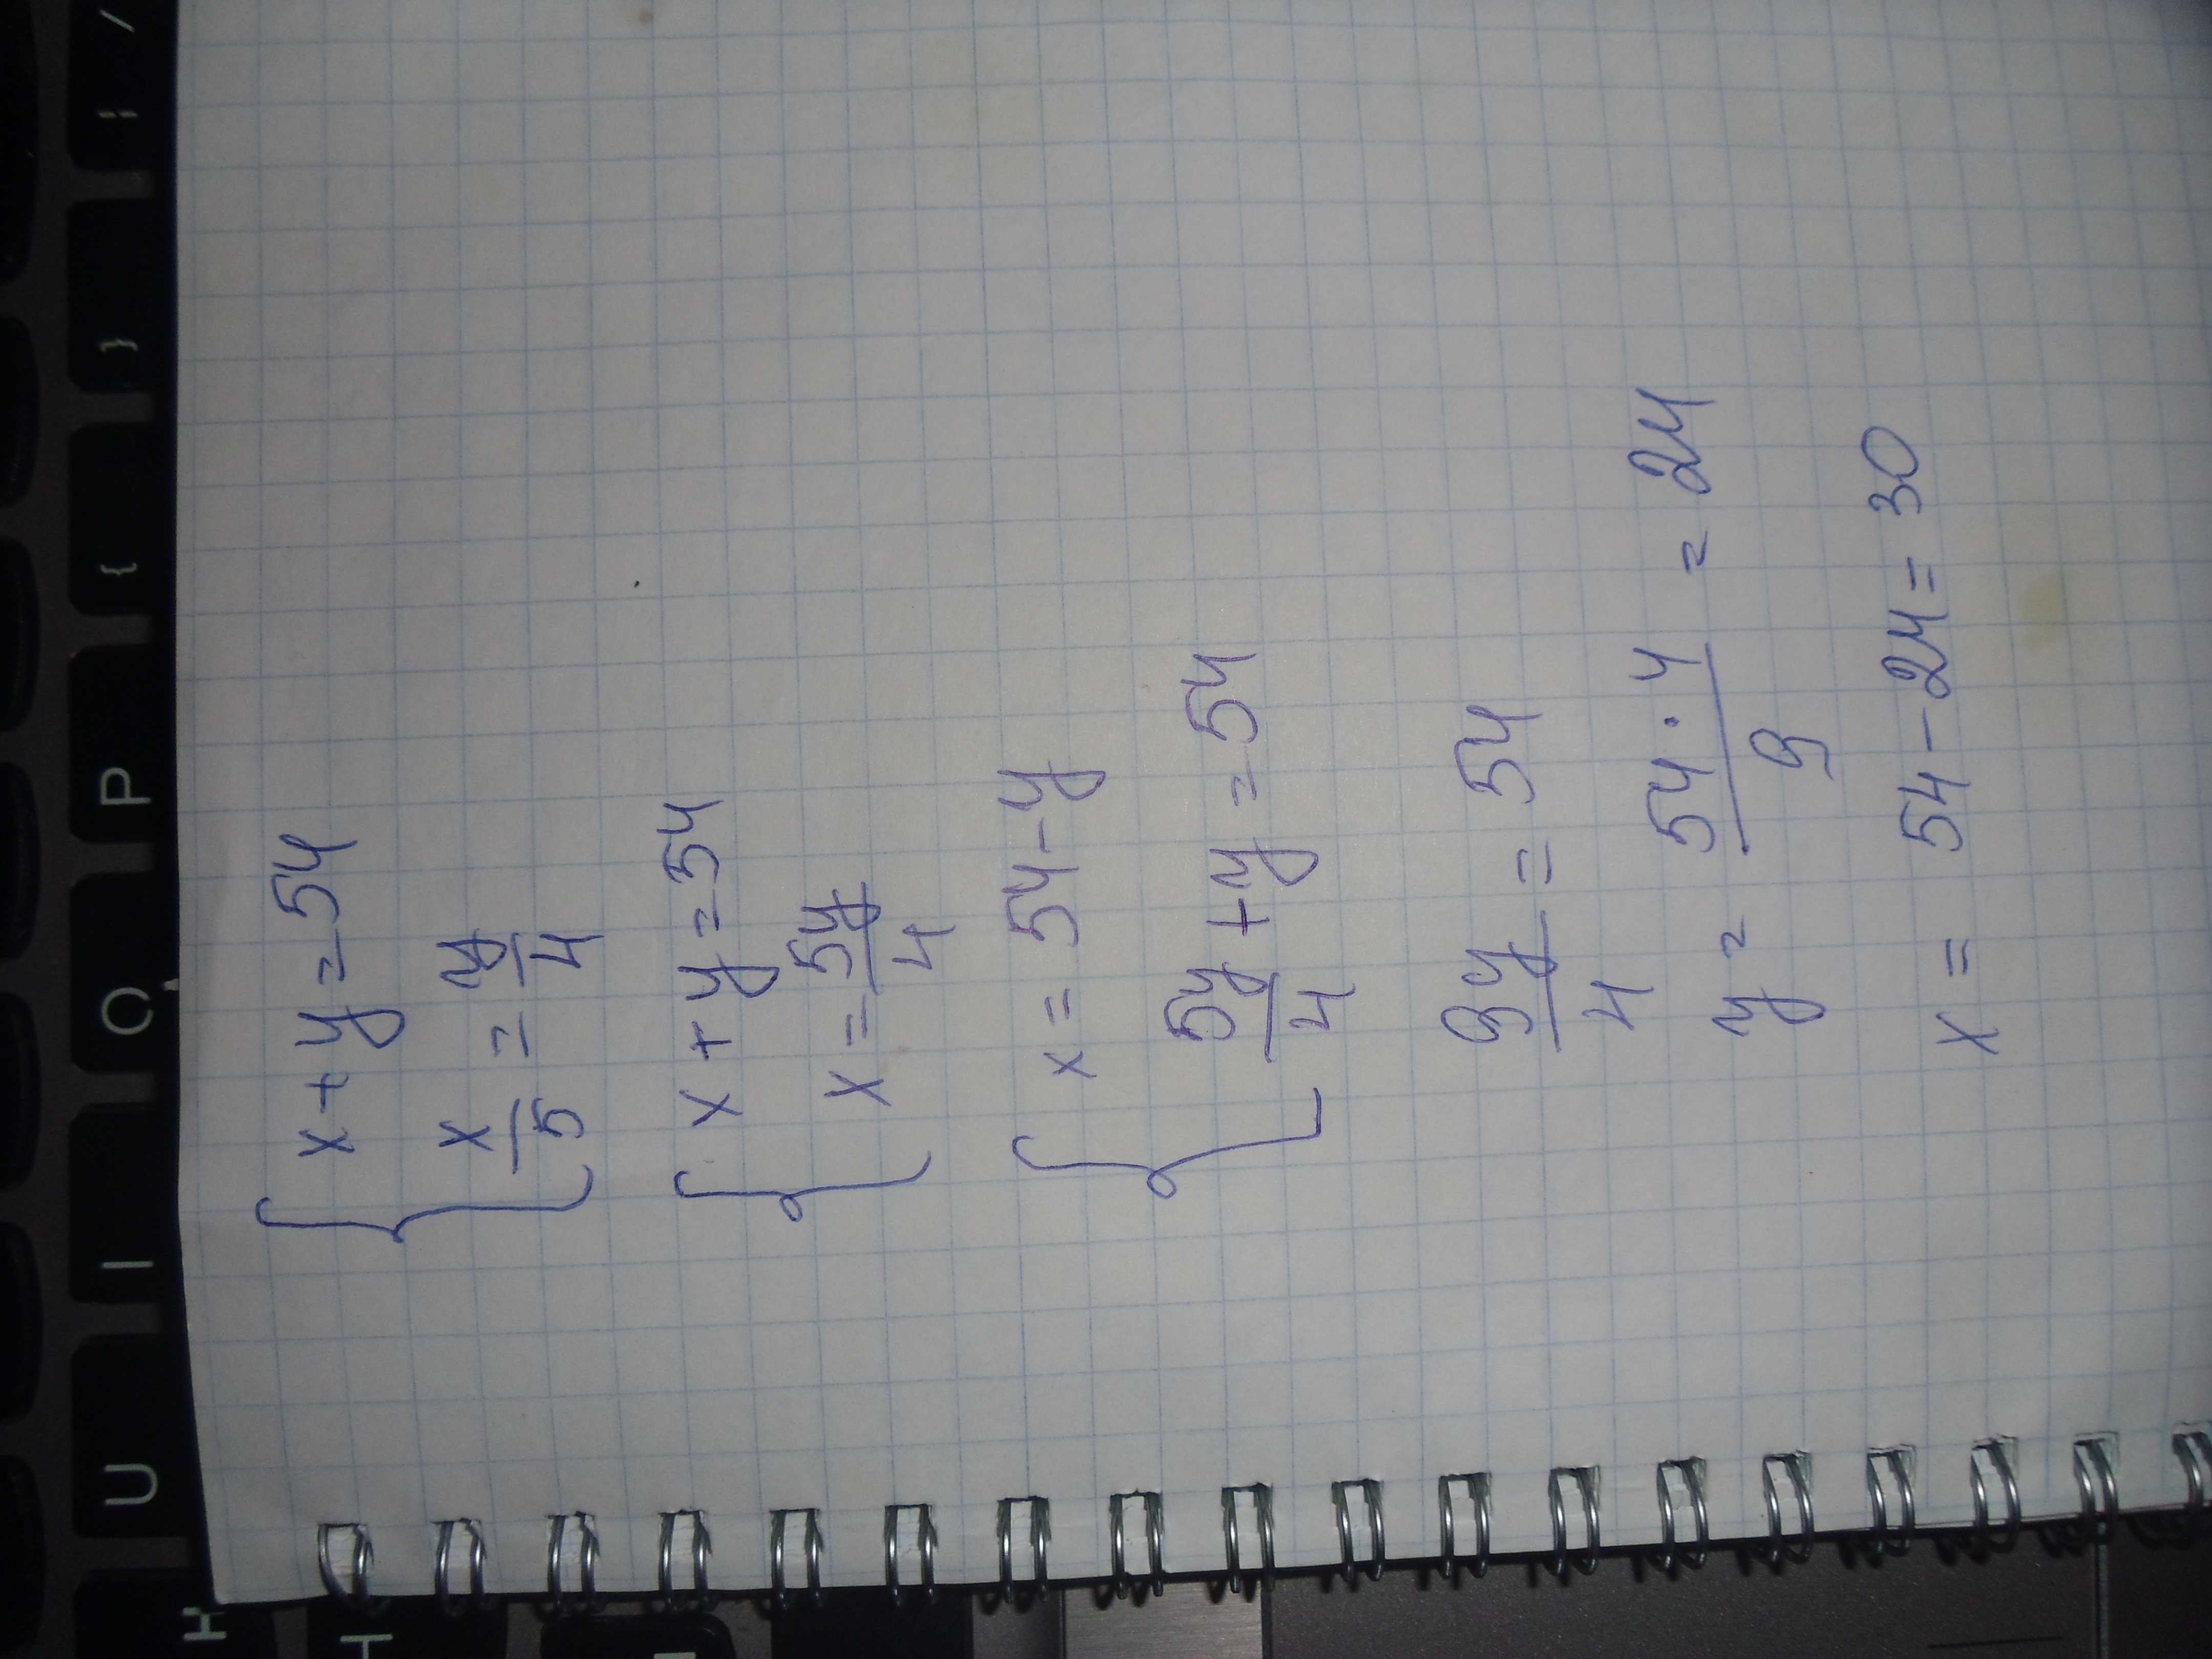 x + y = 54
x/5 = y/4
x + y = 54
x = 5y/4
x = 54 - y
5y/4 + y = 54
9y/4 = 54
y = 54·4/9 = 24
x = 54 - 24 = 30
U I O P { } | /
H